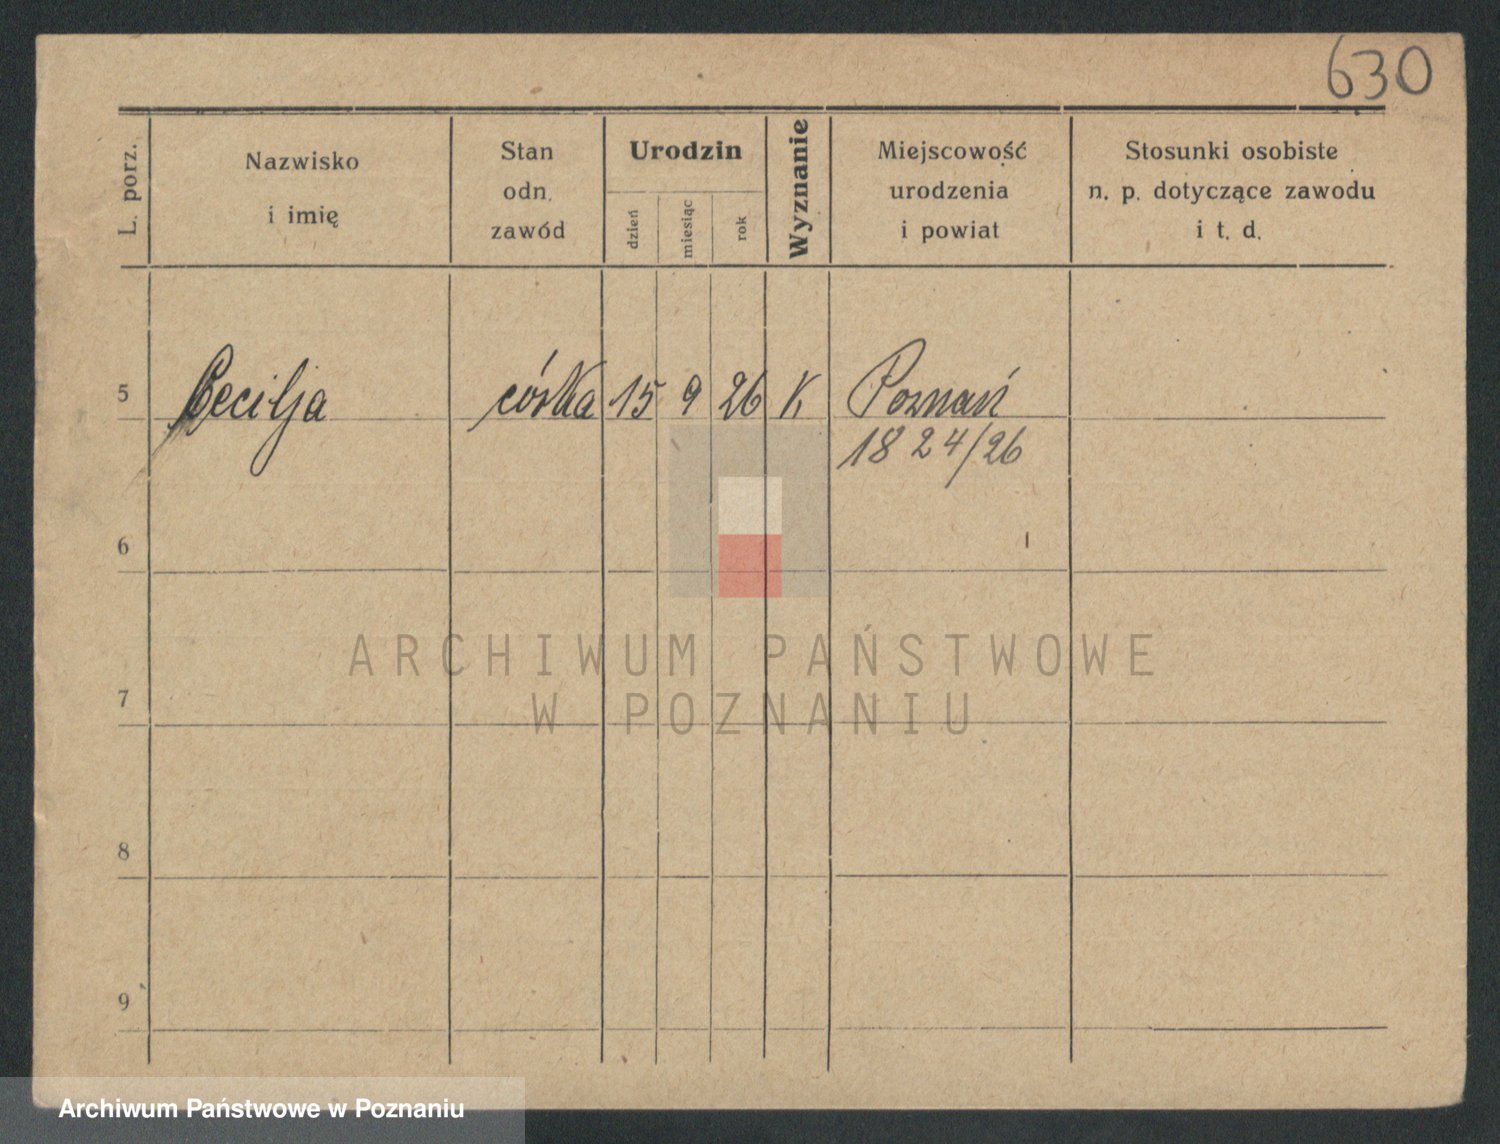 630
L. porz.
Nazwisko
i imię
Stan
odn.
zawód
Urodzin
dzień
miesiąc
rok
Wyznanie
Miejscowość
urodzenia
i powiat
Stosunki osobiste
n. p. dotyczące zawodu
i t. d.
5 Cecilja córka 15 9 26 K Poznań
1824/26
6
7
8
9
ARCHIWUM PAŃSTWOWE
W POZNANIU
Archiwum Państwowe w Poznaniu